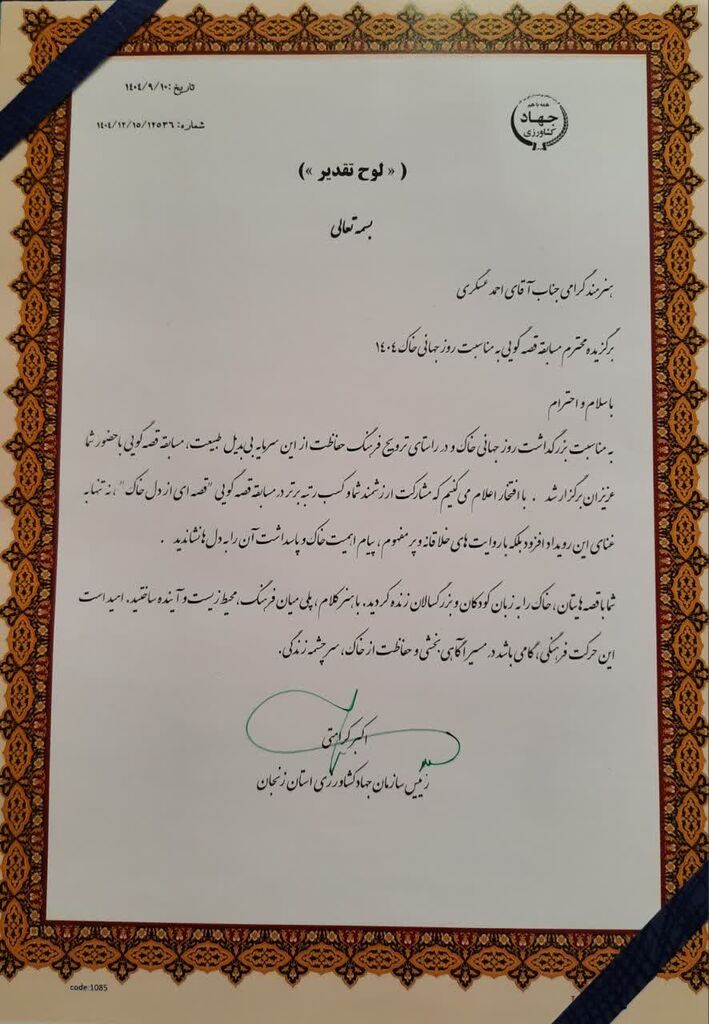 تاریخ: ۱۴۰۴/۹/۱۰
شماره: ۱۴۰۴/۱۲/۱۵/۱۲۵۳۶
همه با هم
جهاد
کشاورزی
( « لوح تقدیر » )
بسمه تعالی
هنرمند گرامی جناب آقای احمد عسگری
برگزیده محترم مسابقه قصه گویی به مناسبت روز جهانی خاک ۱۴۰۴
با سلام و احترام
به مناسبت بزرگداشت روز جهانی خاک و در راستای ترویج فرهنگ حفاظت از این سرمایه بی بدیل طبیعت، مسابقه قصه گویی با حضور شما
عزیزان برگزار شد . با افتخار اعلام می کنیم که مشارکت ارزشمند شما و کسب رتبه برتر در مسابقه قصه گویی "قصه ای از دل خاک"، نه تنها به
غنای این رویداد افزود بلکه با روایت های خلاقانه و پر مفهوم، پیام اهمیت خاک و پاسداشت آن را به دل ها نشاندید .
شما با قصه هایتان، خاک را به زبان کودکان و بزرگسالان زنده کردید. با هنر کلام، پلی میان فرهنگ، محیط زیست و آینده ساختید. امید است
این حرکت فرهنگی، گامی باشد در مسیر آگاهی بخشی و حفاظت از خاک، سرچشمه زندگی.
اکبر کرامتی
رئیس سازمان جهاد کشاورزی استان زنجان
code:1085